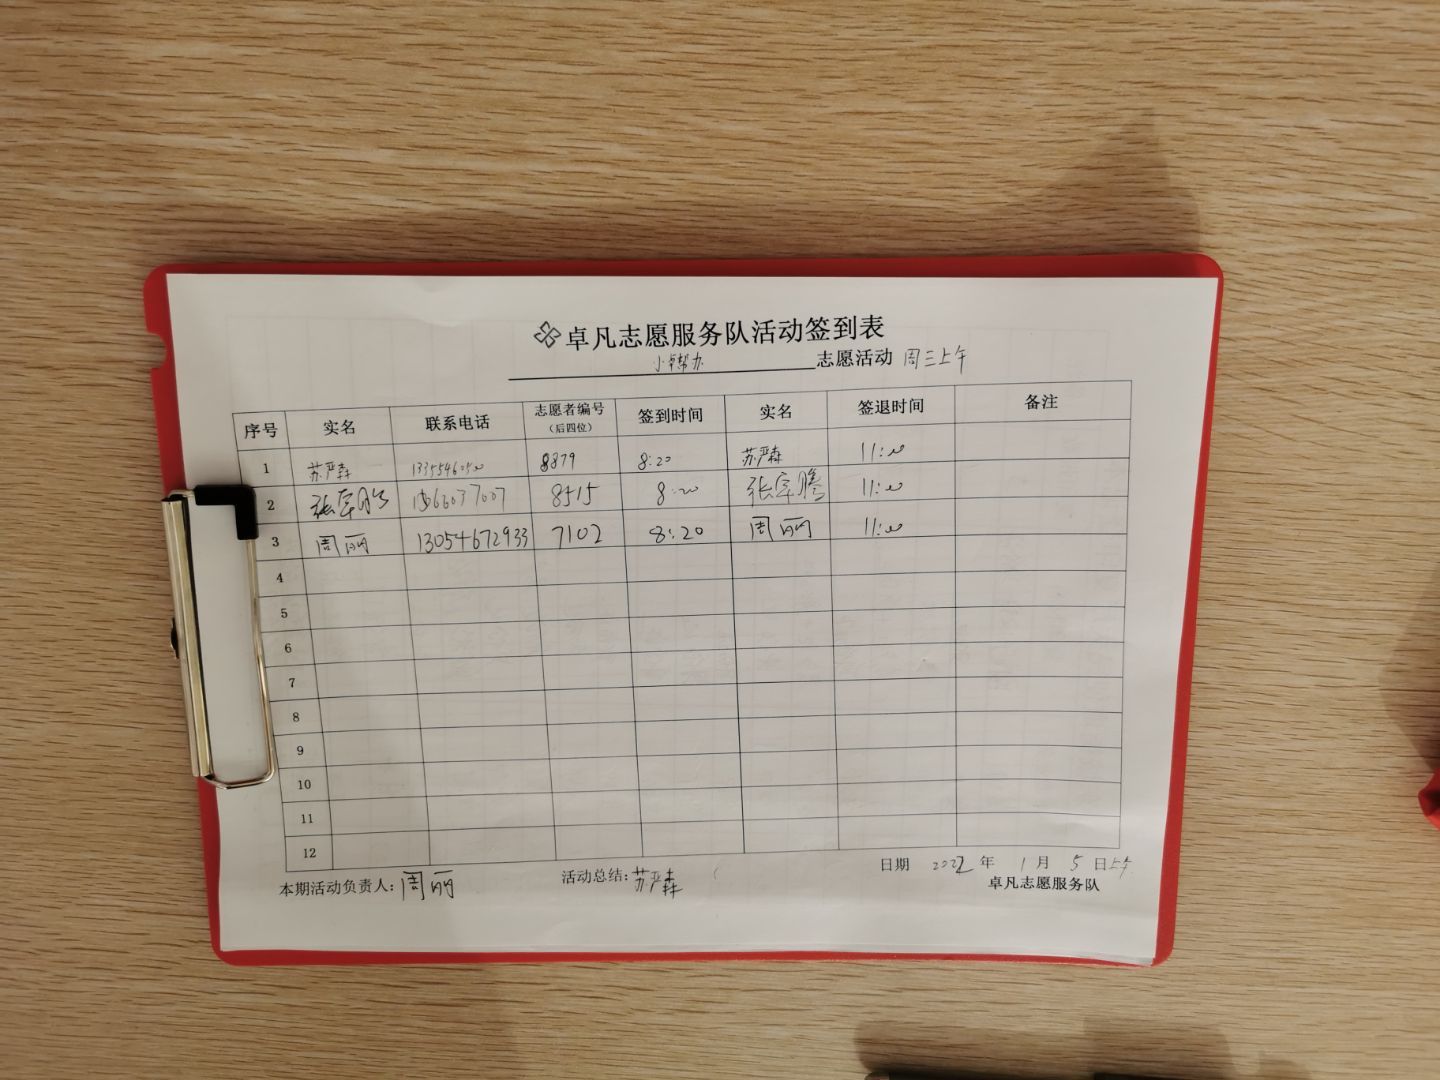 卓凡志愿服务队活动签到表
小卓帮办 志愿活动 周三上午
序号 实名 联系电话 志愿者编号（后四位） 签到时间 实名 签退时间 备注
1 苏严森 8879 8:20 苏严森 11:00
2 8515 8:20 11:00
3 周丽 13054672933 7102 8:20 周丽 11:00
4
5
6
7
8
9
10
11
12
本期活动负责人：周丽 活动总结：苏严森 日期 2022 年 1 月 5 日上午
卓凡志愿服务队